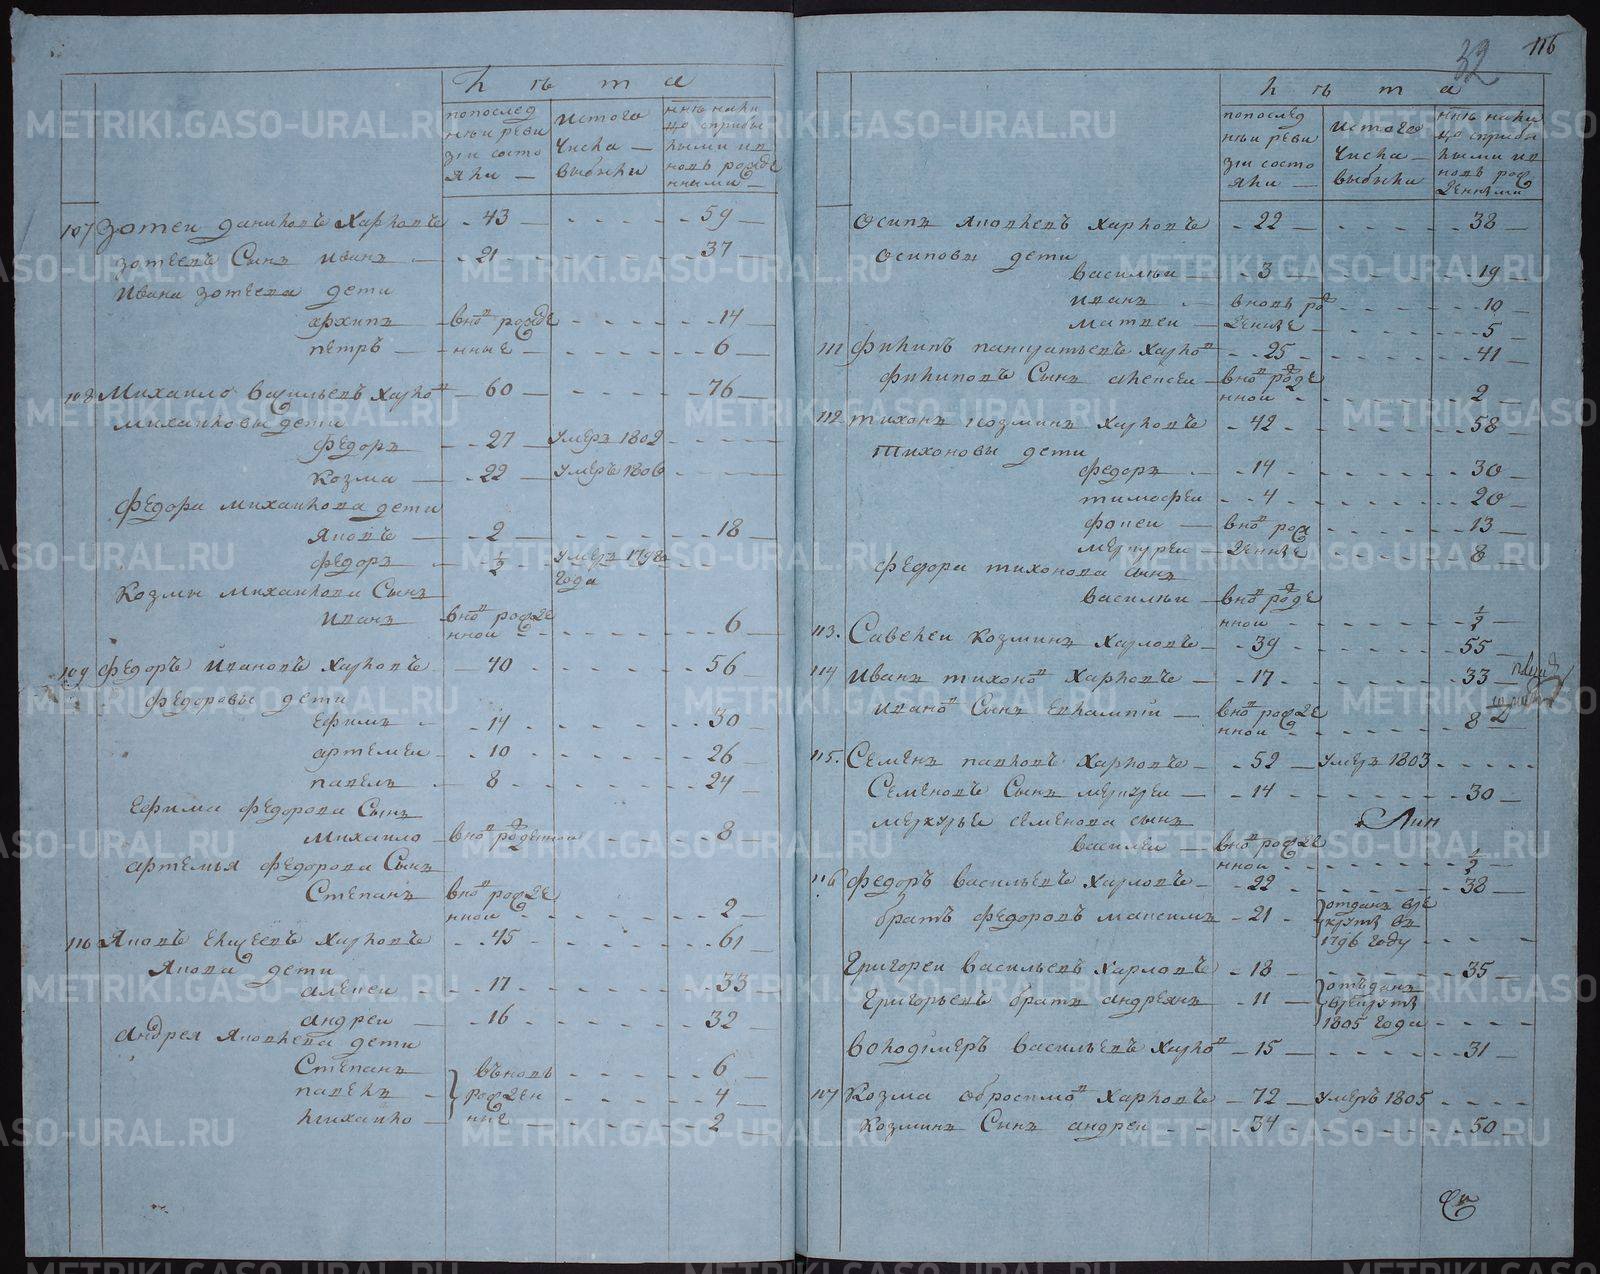 лѣта
попослед
нѣи реви
зіи состо
яли
истого
числа
выбыли
нынѣ нали
цо сприбы
лыми ив
новь рожде
нными
107 Зотеи даниловъ Харловъ 43 59
зотеевъ Сынъ иванъ 21 37
Ивана зотеева дети
архипъ вновь рожде 14
петръ нные 6
108 Михаило Васильевъ Харловъ 60 76
михаиловы дети
федоръ 27 умеръ 1802
козма 22 умеръ 1806
федора михаилова дети
яковъ 2 18
федоръ ½ умеръ 1798
года
Козмы михаилова Сынъ
иванъ вновь рожде
нной 6
109 федоръ ивановъ Харловъ 40 56
федоровы дети
Ефимъ 14 30
артемеи 10 26
павелъ 8 24
Ефима федорова Сынъ
михаило вновь 8
артемья федорова Сынъ
Степанъ вновь рожде
нной 2
110 Яковъ Харловъ 45 61
Якова дети
алексеи 17 33
андреи 16 32
андрея Яковлева дети
Степанъ въновь 6
павелъ рожден 4
михаило ные 2
32 116
лѣта
попослед
нѣи реви
зіи состо
яли
истого
числа
выбыли
нынѣ нали
цо сприбы
лыми ив
новь рож
денными
Осипъ яковлевъ Харловъ 22 38
осиповы дети
василеи 3 19
иванъ вновь ро 10
матвеи жденные 5
111 филипъ панкратьевъ Харловъ 25 41
филиповъ Сынъ алексеи вновь рожде
нной 2
112 тихонъ козминъ Харловъ 42 58
Тихоновы дети
федоръ 14 30
тимофеи 4 20
фокеи вновь рож 13
меркуреи денные 8
федора тихонова сынъ
василеи вновь рожде
нной ½
113. Савелеи козминъ Харловъ 39 55
114 иванъ тихоновъ Харловъ 17 33
ивановъ Сынъ Евлампіи вновь рожде
нной 8
115. Семенъ павловъ Харловъ 52 умеръ 1803
Семеновъ Сынъ меркуреи 14 30
меркурье семенова сынъ
василеи вновь рожде
нной ½
116 федоръ васильевъ Харловъ 22 38
братъ федоровъ максимъ 21 отданъ вре
круты въ
1796 году
Григореи васильевъ Харловъ 18 35
Григорьевъ братъ андреянъ 11 отъданъ
врекруты
1805 года
володимеръ васильевъ Харловъ 15 31
117 козма обросимовъ Харловъ 72 умеръ 1805
козминъ Сынъ андреи 34 50
METRIKI.GASO-URAL.RU